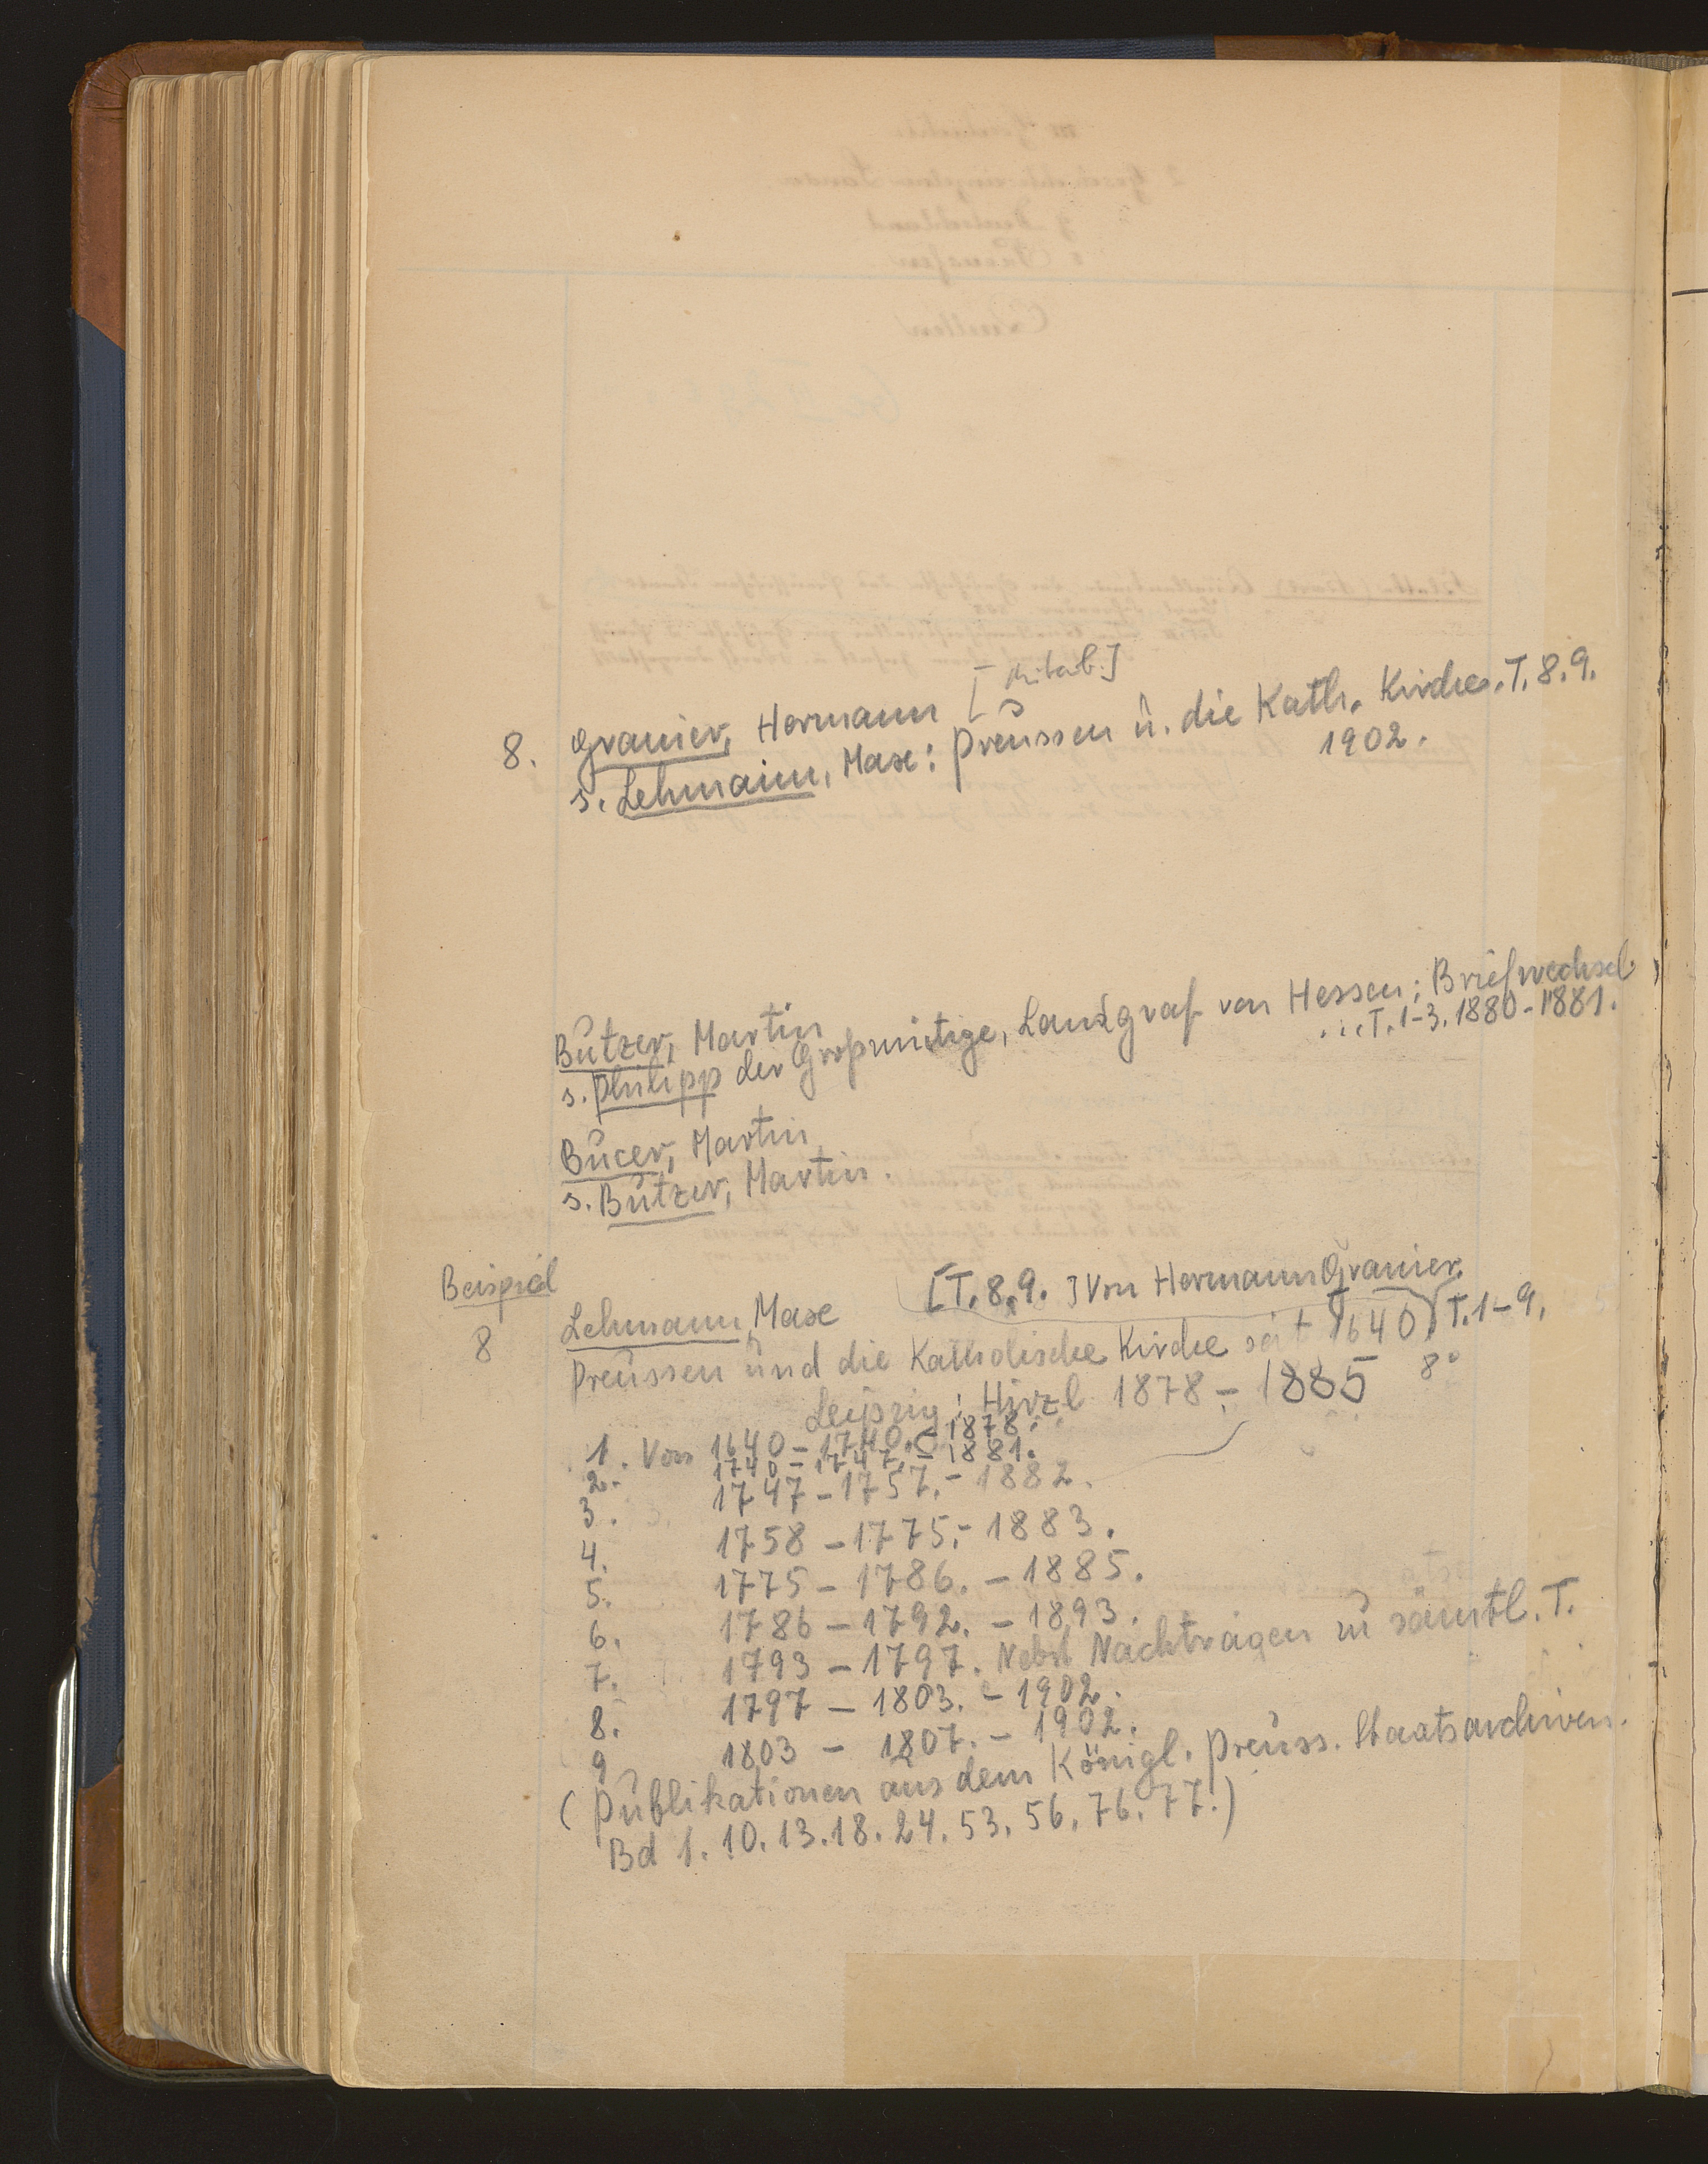 8. Granier, Hermann [Mitarb.]
s. Lehmann, Max: Preussen u. die Kath. Kirche. T. 8. 9.
1902.
Butzer, Martin
s. Philipp der Großmütige, Landgraf von Hessen: Briefwechsel
... T. 1-3. 1880-1881.
Bucer, Martin
s. Butzer, Martin.
Beispiel
8
[T. 8. 9.] Von Hermann Granier.
Lehmann, Max
Preussen und die Katholische Kirche seit 1640. T. 1-9.
Leipzig: Hirzl 1878-1885 8°
1. Von 1640-1740. - 1878.
2. 1740-1747. - 1881.
3. 1747-1757. - 1882.
4. 1758-1775. - 1883.
5. 1775-1786. - 1885.
6. 1786-1792. - 1893.
7. 1793-1797. Nebst Nachträgen zu sämtl. T.
8. 1797-1803. - 1902.
9 1803 - 1807. - 1902.
(Publikationen aus dem Königl. Preuss. Staatsarchiven.
Bd 1. 10. 13. 18. 24. 53. 56. 76. 77.)